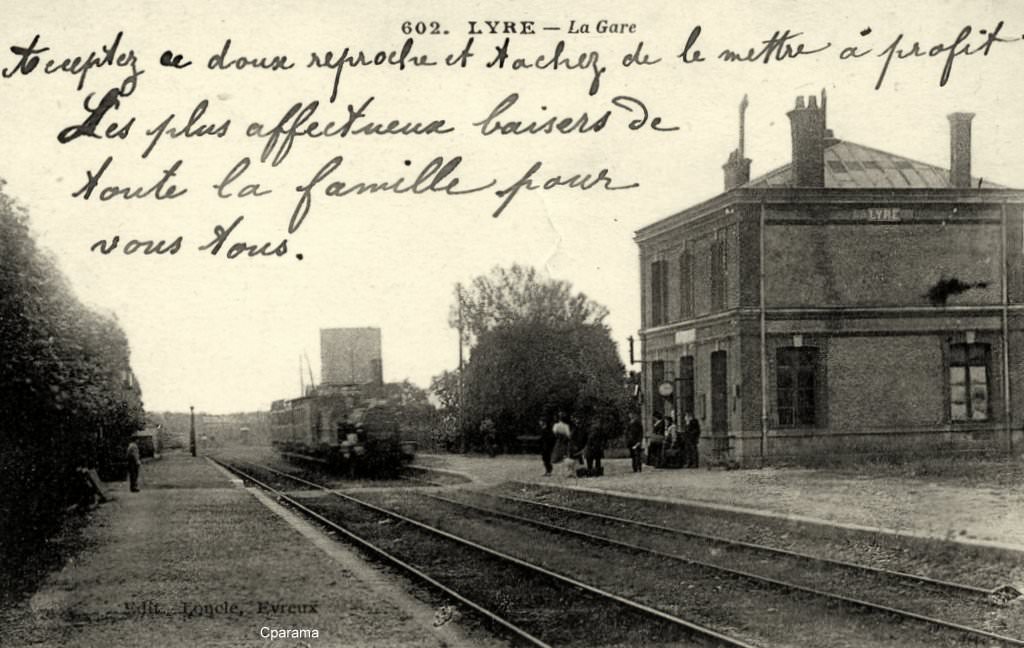 602. LYRE — La Gare
Acceptez ce doux reproche et tachez de le mettre à profit.
Les plus affectueux baisers de
toute la famille pour
vous tous.
LYRE
Edit. Loncle, Evreux
Cparama